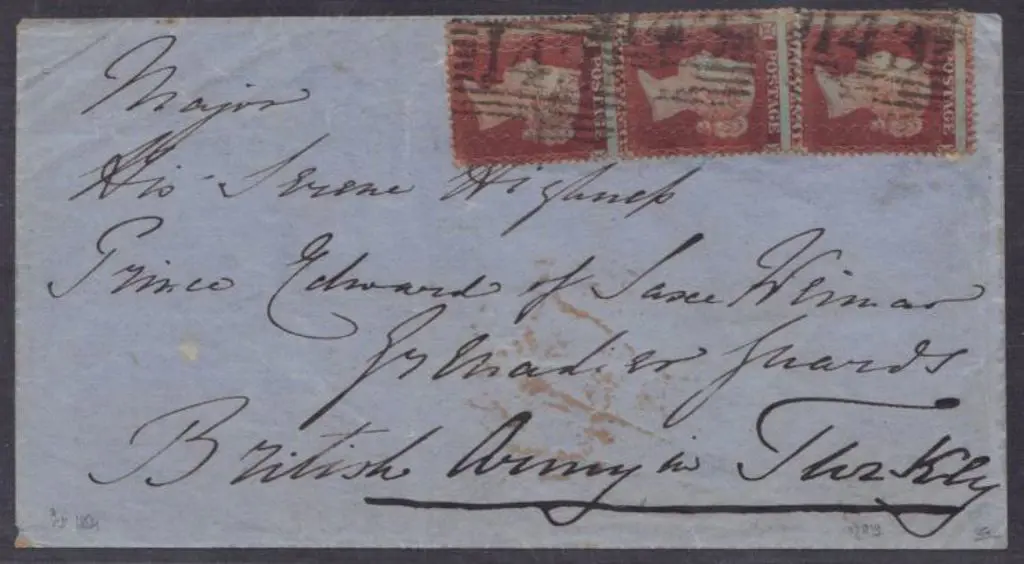 POSTAGE
POSTAGE
POSTAGE
Major
His Serene Highness
Prince Edward of Saxe Weimar
Grenadier Guards
British Army in Turkey
1854